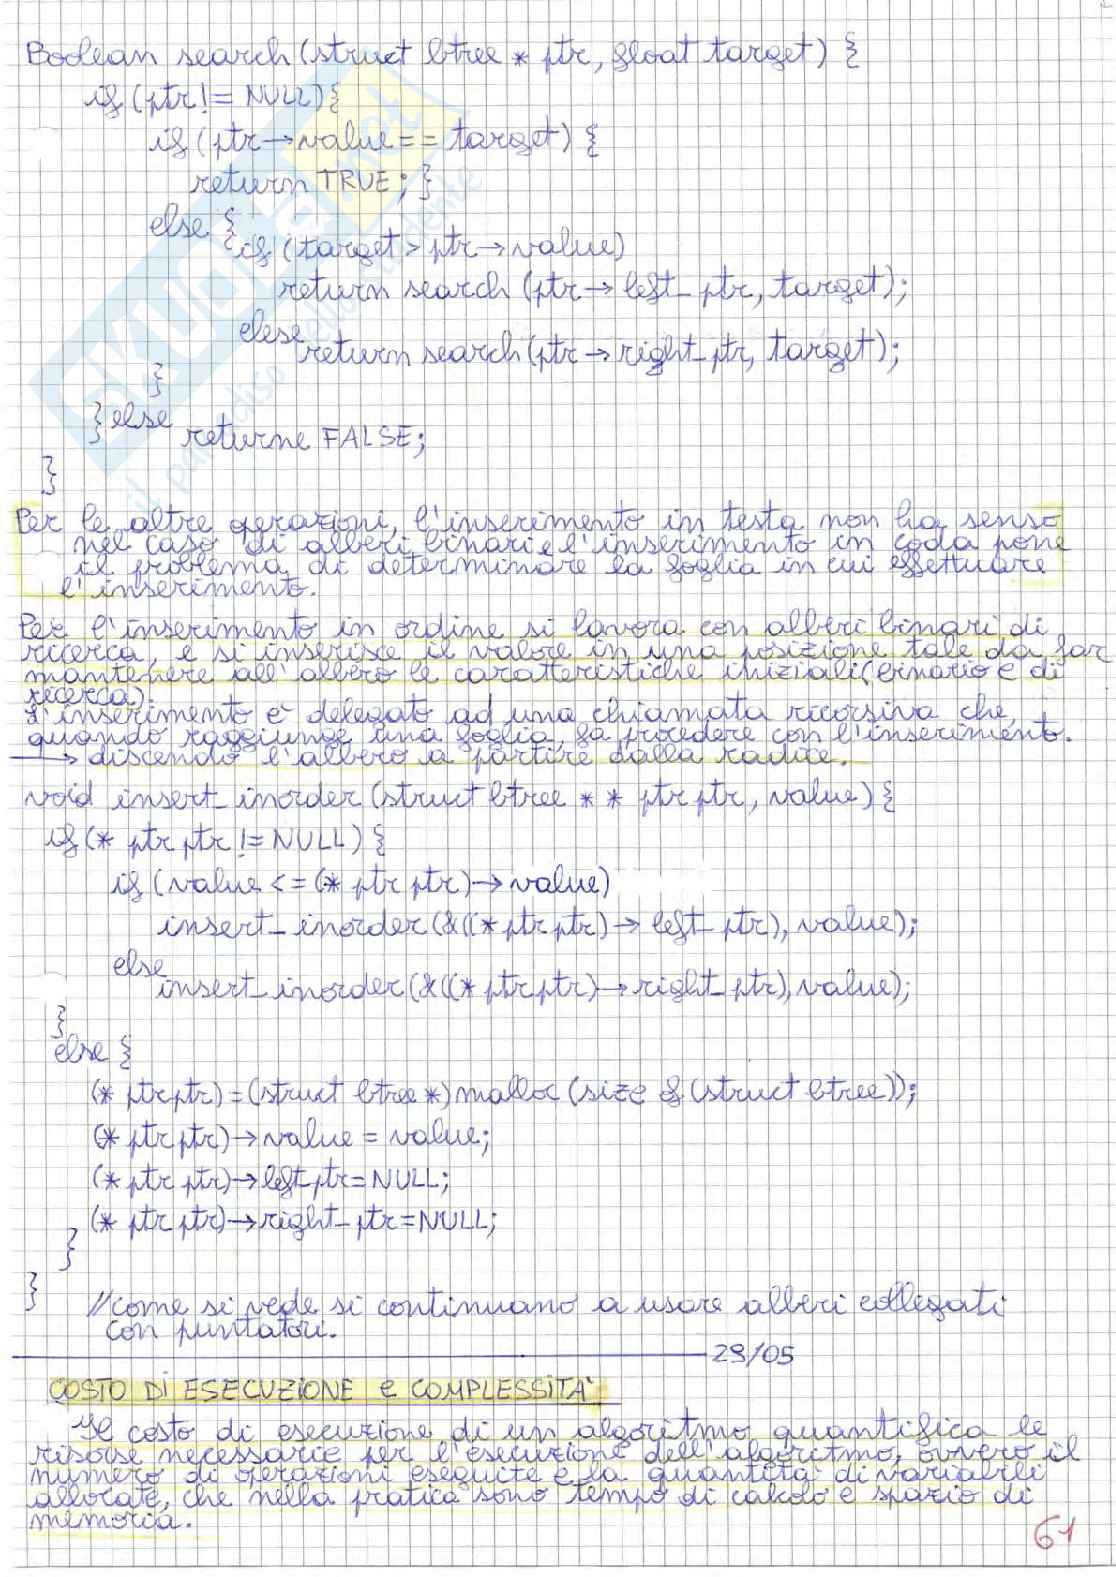 Boolean search (struct btree * ptr, float target) {
if (ptr != NULL) {
if (ptr → value == target) {
return TRUE; }
else {
if (target > ptr → value)
return search (ptr → left_ptr, target);
elese
return search (ptr → right_ptr, target);
}
} else
returne FALSE;
}
Per le altre operazioni, l'inserimento in testa non ha senso
nel caso di alberi binari e l'inserimento in coda pone
il problema di determinare la foglia in cui effettuare
l'inserimento.
Per l'inserimento in ordine si lavora con alberi binari di
ricerca, e si inserisce il valore in una posizione tale da far
mantenere all'albero le caratteristiche iniziali (binario e di
ricerca).
L'inserimento è delegato ad una chiamata ricorsiva che,
quando raggiunge una foglia, fa procedere con l'inserimento.
→ discendo l'albero a partire dalla radice.
void insert_inorder (struct btree * * ptr ptr, value) {
if (* ptr ptr != NULL) {
if (value <= (* ptr ptr) → value)
insert_inorder (&((* ptr ptr) → left_ptr), value);
else
insert_inorder (&((* ptr ptr) → right_ptr), value);
}
else {
(* ptr ptr) = (struct btree *) malloc (size of (struct btree));
(* ptr ptr) → value = value;
(* ptr ptr) → left_ptr = NULL;
(* ptr ptr) → right_ptr = NULL;
}
}
// come si vede si continuano a usare alberi collegati
con puntatori.
29/05
COSTO DI ESECUZIONE e COMPLESSITA'
Il costo di esecuzione di un algoritmo quantifica le
risorse necessarie per l'esecuzione dell'algoritmo, ovvero il
numero di operazioni eseguite e la quantità di variabili
allocate, che nella pratica sono tempo di calcolo e spazio di
memoria.
61
SKUOLA.net
il paradiso dello studente